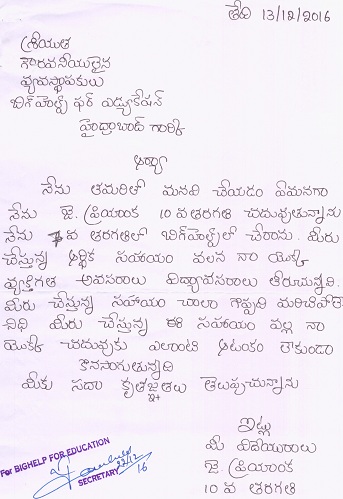 తేది 13/12/2016
శ్రీయుత
గౌరవనీయులైన
వ్యవస్థాపకులు
బిగ్‌హెల్ప్ ఫర్ ఎడ్యుకేషన్
హైద్రాబాద్ గారికి
ఆర్యా
నేను తమరితో మనవి చేయడం ఏమనగా
నేను జె. ప్రియాంక 10 వ తరగతి చదువుతున్నాను
నేను వ తరగతిలో బిగ్‌హెల్ప్‌లో చేరాను. మీరు
చేస్తున్న ఆర్థిక సహాయం వలన నా యొక్క
వ్యక్తిగత అవసరాలు విద్యావసరాలు తీరుచున్నవి.
మీరు చేస్తున్న సహాయం చాలా గొప్పది మరిచిపోలే
నిది మీరు చేస్తున్న ఈ సహాయం వల్ల నా
యొక్క చదువుకు ఎలాంటి ఆటంకం లేకుండా
కొనసాగుతున్నది
మీకు సదా కృతజ్ఞతలు తెలుపుచున్నాను
ఇట్లు
మీ విదేయురాలు
జె. ప్రియాంక
10 వ తరగతి
For BIGHELP FOR EDUCATION
22/12
16
SECRETARY